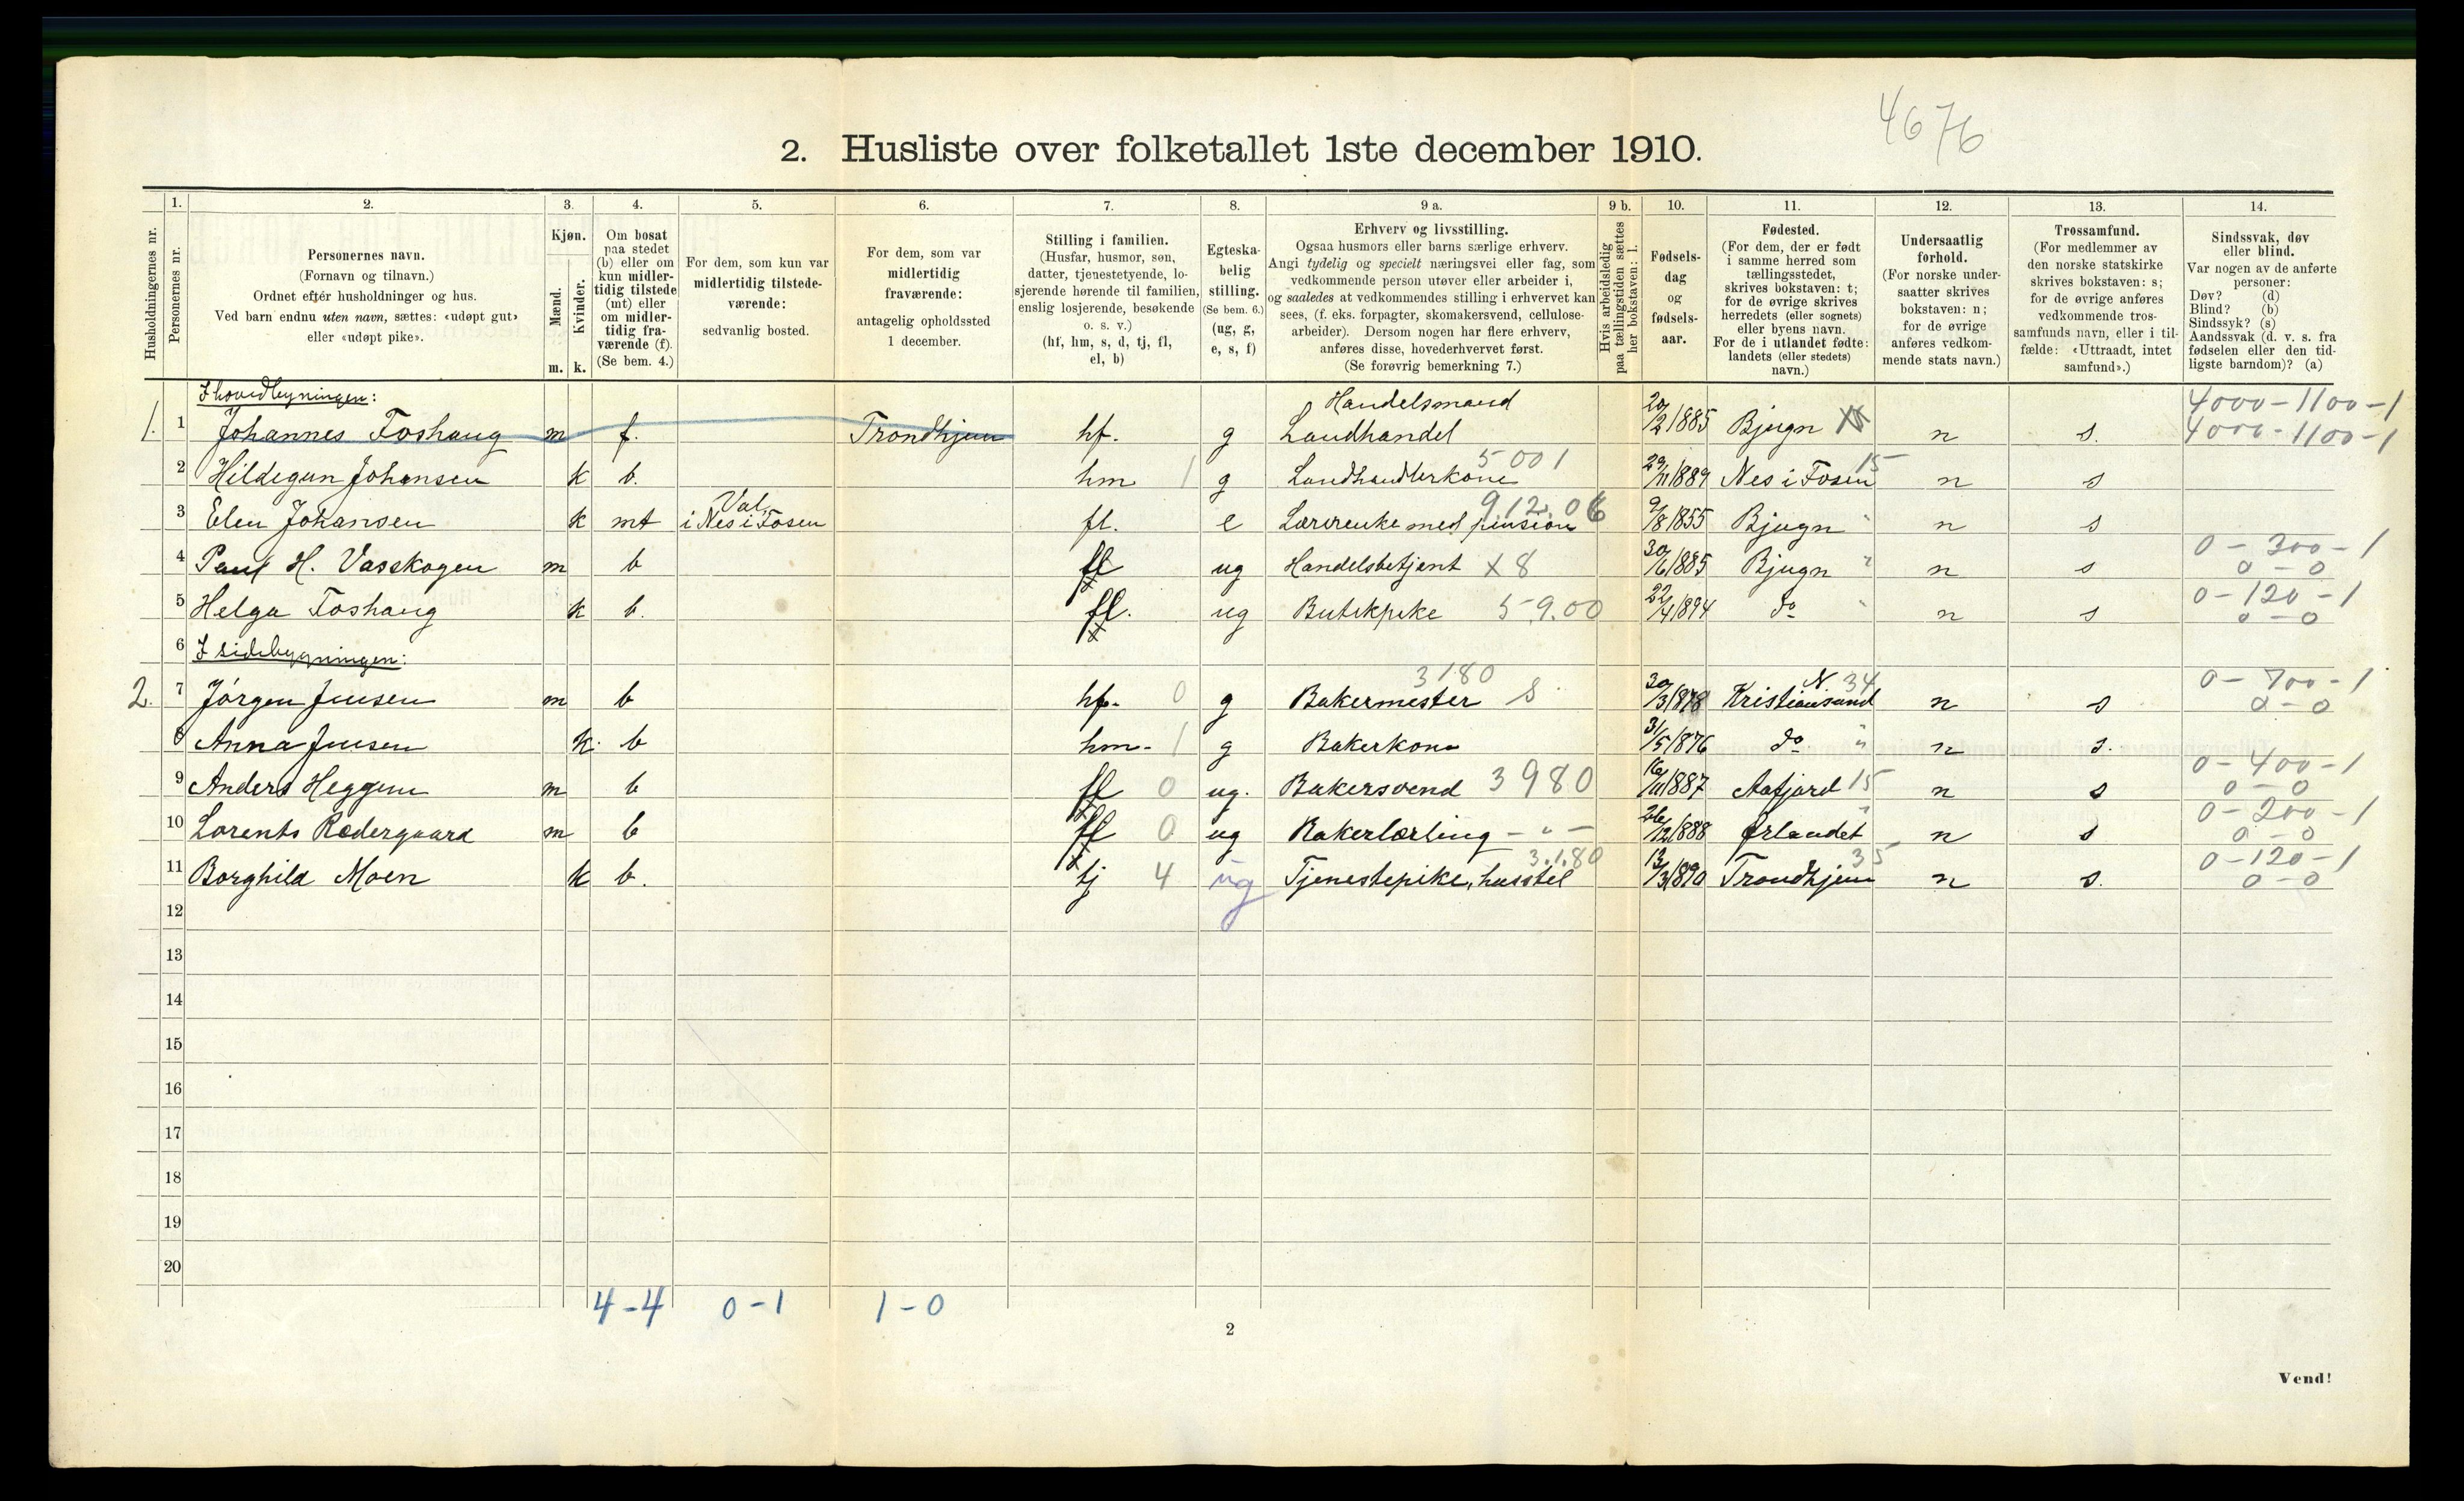 4676
2. Husliste over folketallet 1ste december 1910.
Husholdningernes nr.
1.
Personernes nr.
2.
Personernes navn.
(Fornavn og tilnavn.)
Ordnet efter husholdninger og hus.
Ved barn endnu uten navn, sættes: «udøpt gut»
eller «udøpt pike».
3.
Kjøn.
Mænd.
Kvinder.
m. k.
4.
Om bosat
paa stedet
(b) eller om
kun midler-
tidig tilstede
(mt) eller
om midler-
tidig fra-
værende (f).
(Se bem. 4.)
5.
For dem, som kun var
midlertidig tilstede-
værende:
sedvanlig bosted.
6.
For dem, som var
midlertidig
fraværende:
antagelig opholdssted
1 december.
7.
Stilling i familien.
(Husfar, husmor, søn,
datter, tjenestetyende, lo-
sjerende hørende til familien,
enslig losjerende, besøkende
o. s. v.)
(hf, hm, s, d, tj, fl,
el, b)
8.
Egteska-
belig
stilling.
(Se bem. 6.)
(ug, g,
e, s, f)
9 a.
Erhverv og livsstilling.
Ogsaa husmors eller barns særlige erhverv.
Angi tydelig og specielt næringsvei eller fag, som
vedkommende person utøver eller arbeider i,
og saaledes at vedkommendes stilling i erhvervet kan
sees, (f. eks. forpagter, skomakersvend, cellulose-
arbeider). Dersom nogen har flere erhverv,
anføres disse, hovederhvervet først.
(Se forøvrig bemerkning 7.)
9 b.
Hvis arbeidsledig
paa tællingstiden sættes
her bokstaven: l.
10.
Fødsels-
dag
og
fødsels-
aar.
11.
Fødested.
(For dem, der er født
i samme herred som
tællingsstedet,
skrives bokstaven: t;
for de øvrige skrives
herredets (eller sognets)
eller byens navn.
For de i utlandet fødte:
landets (eller stedets)
navn.)
12.
Undersaatlig
forhold.
(For norske under-
saatter skrives
bokstaven: n;
for de øvrige
anføres vedkom-
mende stats navn.)
13.
Trossamfund.
(For medlemmer av
den norske statskirke
skrives bokstaven: s;
for de øvrige anføres
vedkommende tros-
samfunds navn, eller i til-
fælde: «Uttraadt, intet
samfund».)
14.
Sindssvak, døv
eller blind.
Var nogen av de anførte
personer:
Døv? (d)
Blind? (b)
Sindssyk? (s)
Aandssvak (d. v. s. fra
fødselen eller den tid-
ligste barndom)? (a)
I hovedbygningen: Handelsmand 4000-1100-1
1. 1 Johannes Foshaug m f. Trondhjem hf. g Landhandel 20/2 1885 Bjugn n s. 4000-1100-1
2 Hildegun Johansen k b. hm 1 g Landhandlerkone 5001 29/11 1889 Nes i Fosen 15 n s
3 Elen Johansen k mt Val i Nes i Fosen fl. e Lærerenke med pension 912.06 9/8 1855 Bjugn " n s
4 Paul H. Vasskogen m b fl ug Handelsbetjent x8 30/6 1885 Bjugn " n s 0-300-1 0-0
5 Helga Foshaug k b. fl. ug Butikpike 59.00 22/4 1894 do " n s 0-120-1 0-0
6 I sidebygningen:
2. 7 Jörgen Jensen m b hf. 0 g Bakermester 3180 S 30/3 1878 Kristiansund N. 34 n s 0-700-1 0-0
8 Anna Jensen k. b hm- 1 g Bakerkone 31/5 1876 do " n s.
9 Anders Heggem m b fl 0 ug. Bakersvend 3980 16/11 1887 Aafjord 15 n s 0-400-1 0-0
10 Lorents Rødergaard m b fl 0 ug Bakerlærling -"- 26/12 1888 Ørlandet " n s 0-200-1 0-0
11 Borghild Moen k b. tj 4 ug Tjenestepike, husstel 3.1.80 13/3 1890 Trondhjem 35 n s. 0-120-1 0-0
12
13
14
15
16
17
18
19
20
4-4 0-1 1-0
2
Vend!